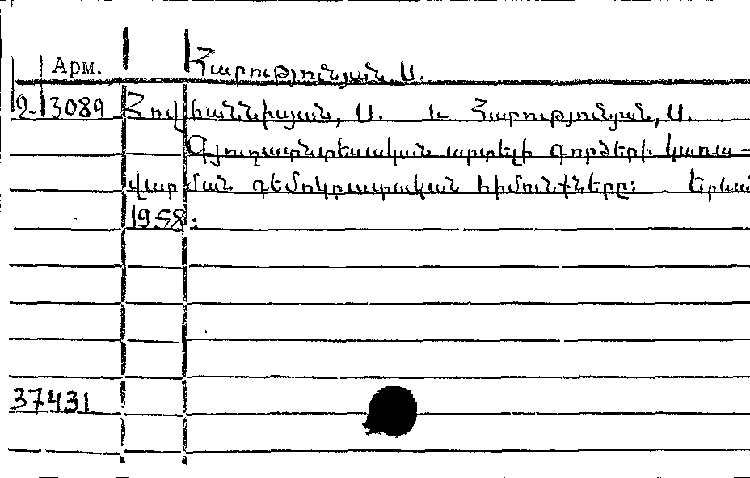 Арм. Հարությունյան Ս.
2-13089 Հովհաննիսյան, Ս. և Հարությունյան, Ս.
Գյուղատնտեսական արտելի գործերի կառա-
վարման դեմոկրատական հիմունքները: Երևան
1958.
37431